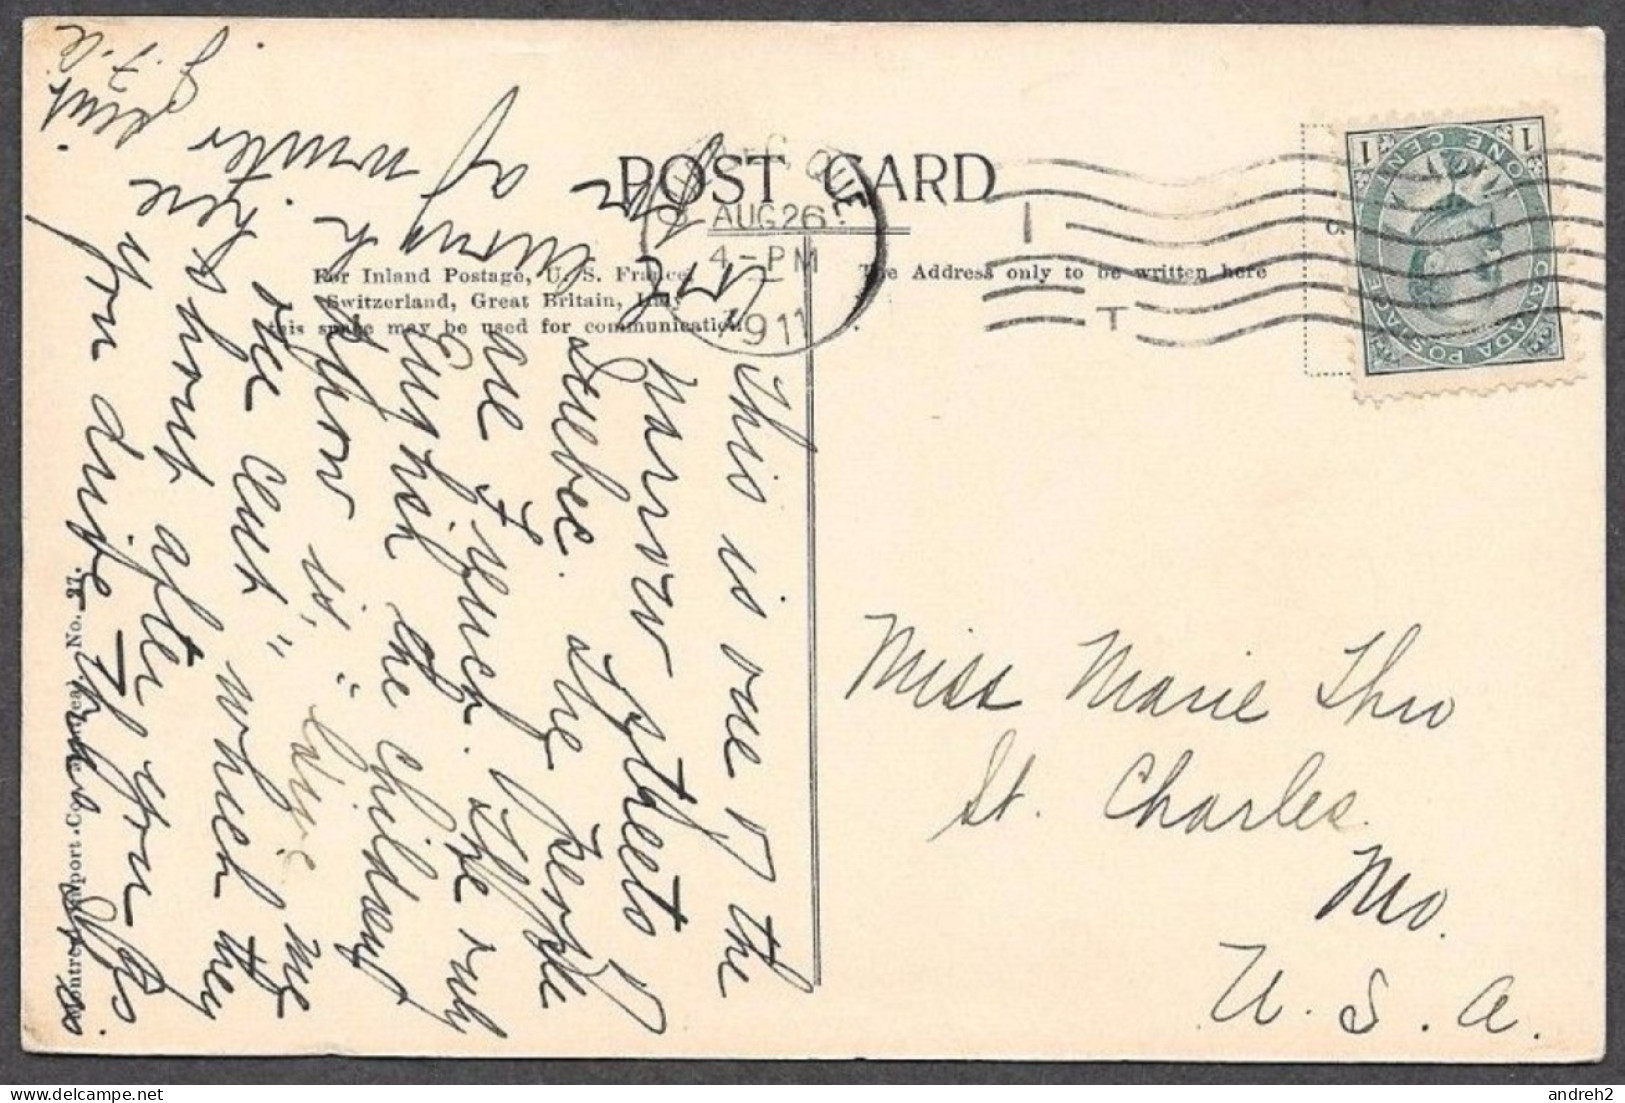 POST CARD
For Inland Postage, U. S. France,
Switzerland, Great Britain, Italy
this space may be used for communication
The Address only to be written here
QUE
AUG 26
4-PM
1911
1 ONE CENT 1
CANADA POSTAGE
Miss Marie Thro
St. Charles
Mo.
U. S. A.
This is one of the
narrow streets of
Quebec. The people
are French. The only
English the children
know is, "Give me
one cent" which they
shout after you
as you drive
of winter
here
Import Co., Montreal. No. 27.
andreh2